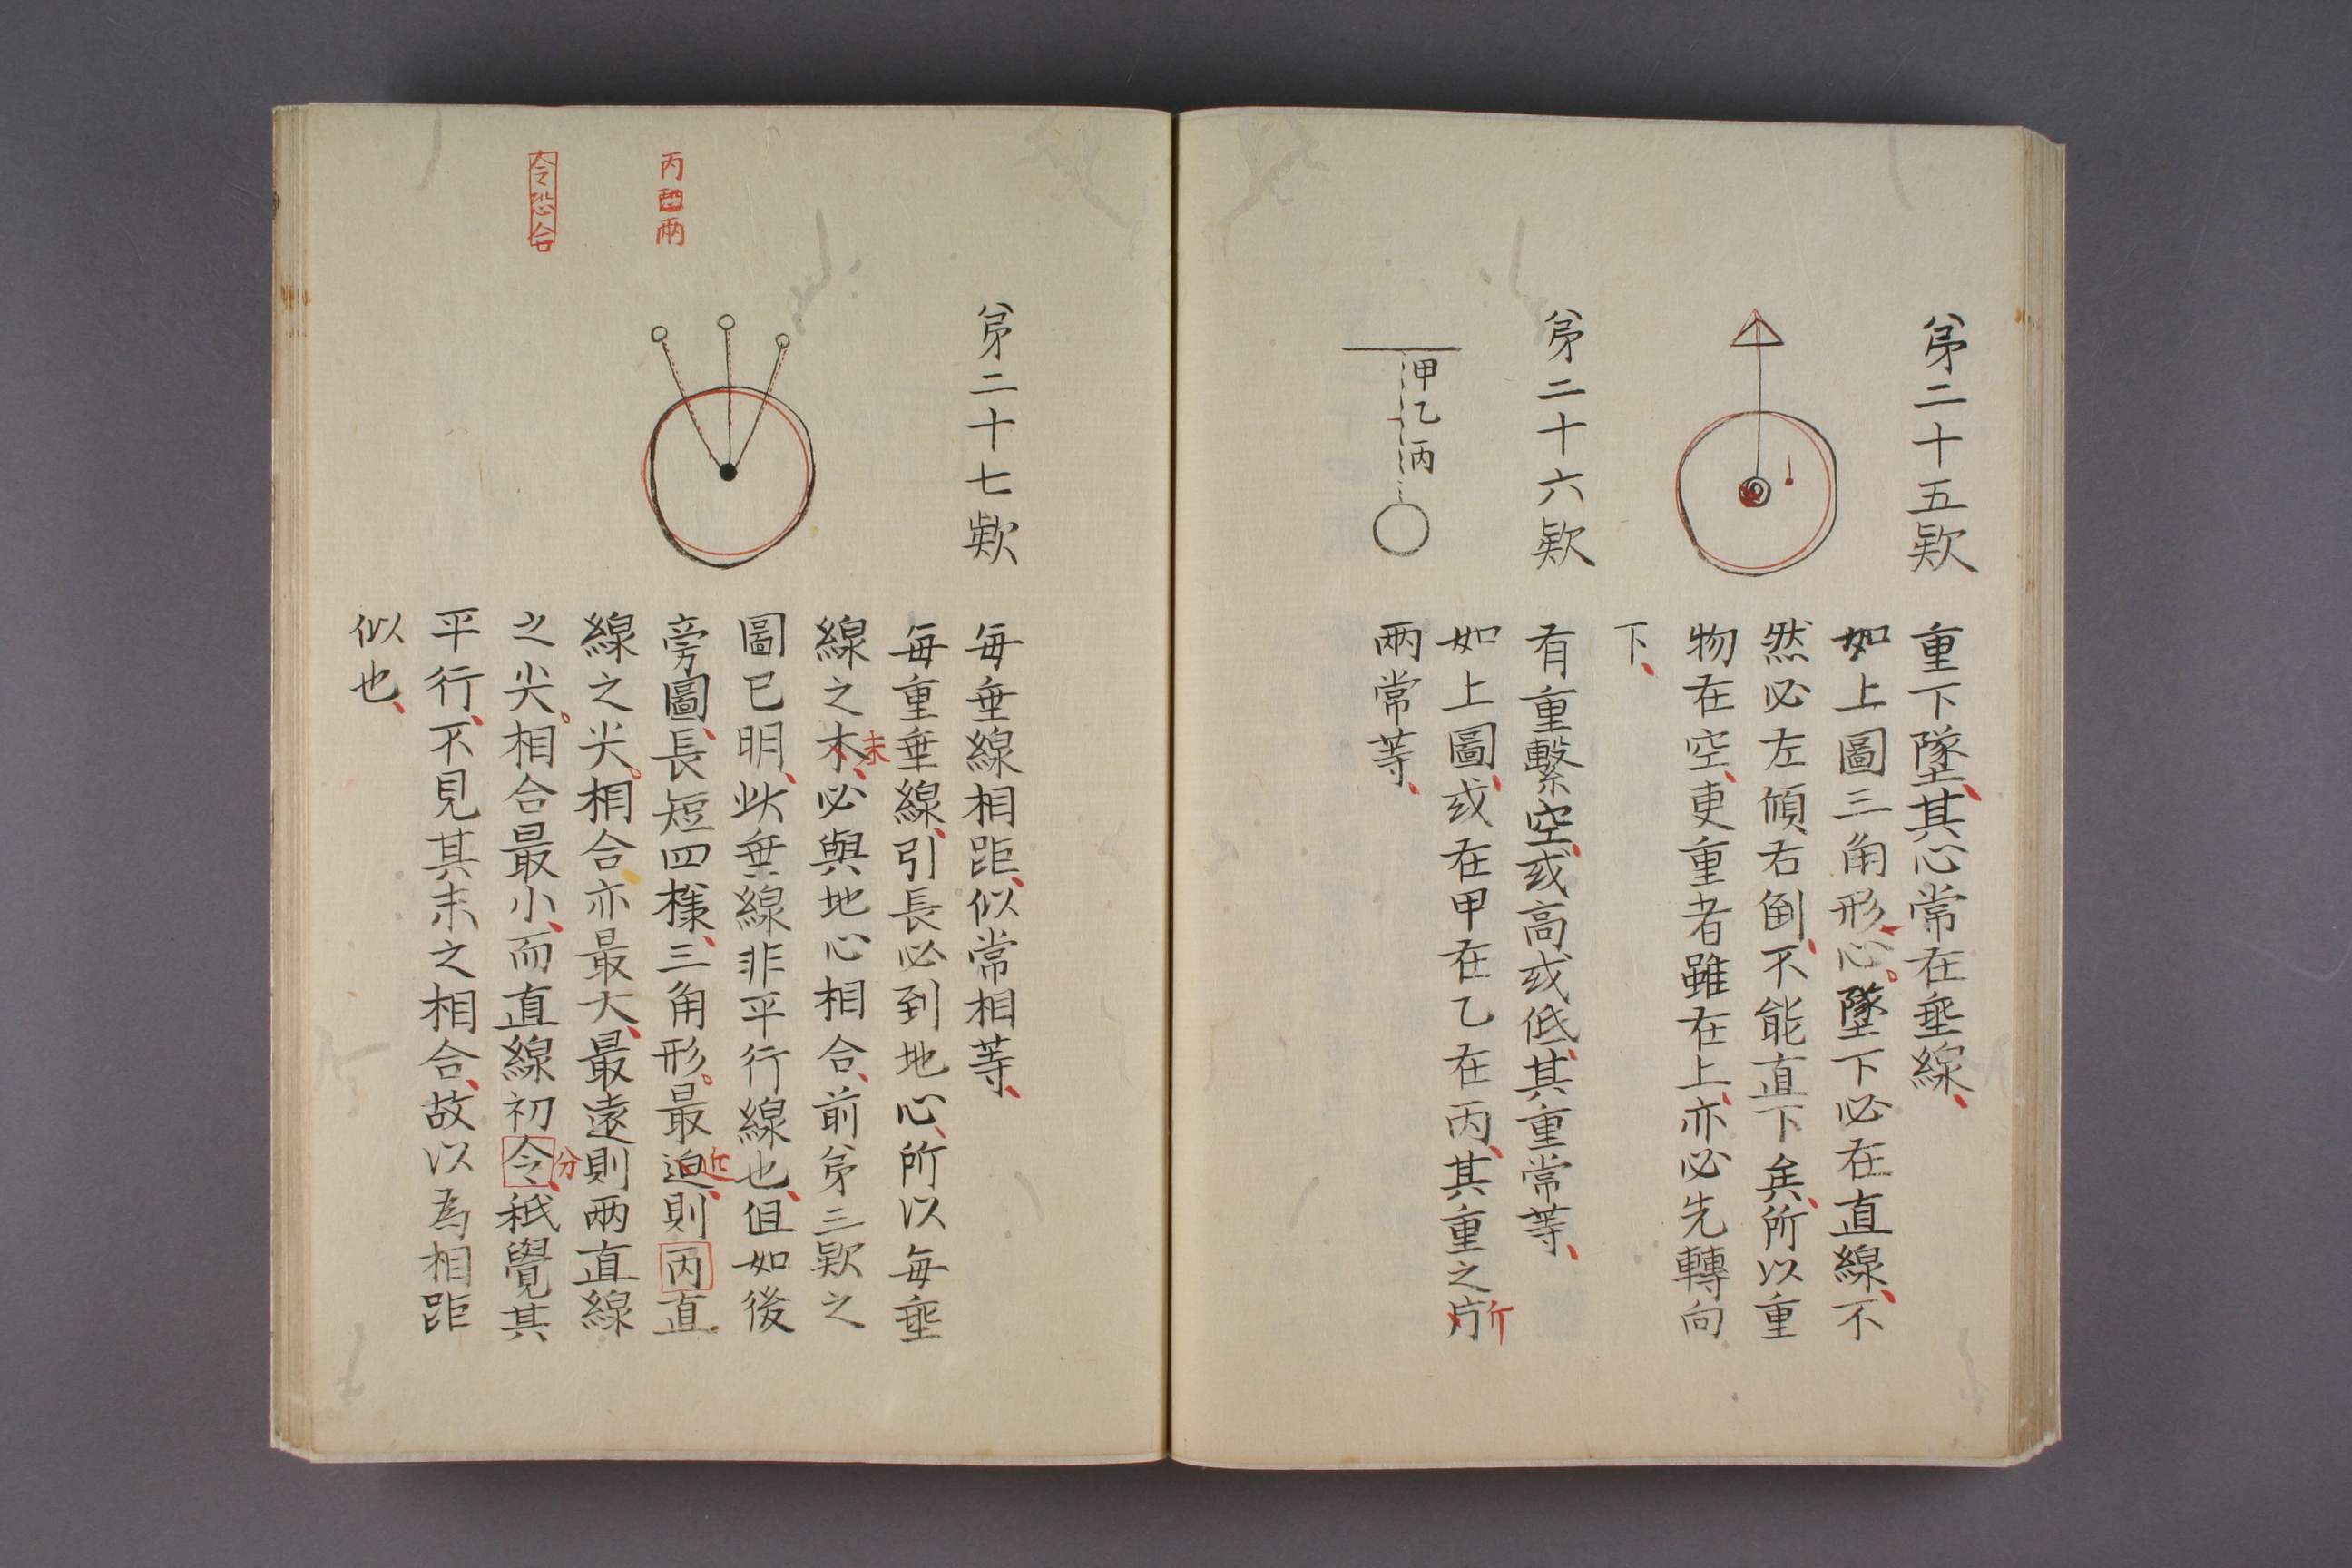 第二十五欵
重下墜其心常在垂線
如上圖三角形心墜下必在直線不
然必左傾右倒不能直下矣所以重
物在空更重者雖在上亦必先轉向
下
第二十六欵
甲乙丙
有重繫空或高或低其重常等
如上圖或在甲在乙在丙其重之斤
斤
兩常等
第二十七欵
每垂線相距似常相等
每重垂線引長必到地心所以每垂
線之木必與地心相合前第三欵之
末
圖已明此垂線非平行線也但如後
旁圖長短四樣三角形最迫則丙直
近
線之尖相合亦最大最遠則兩直線
之尖相合最小而直線初令秖覺其
分
平行不見其末之相合故以為相距
似也
丙 兩
令恐合